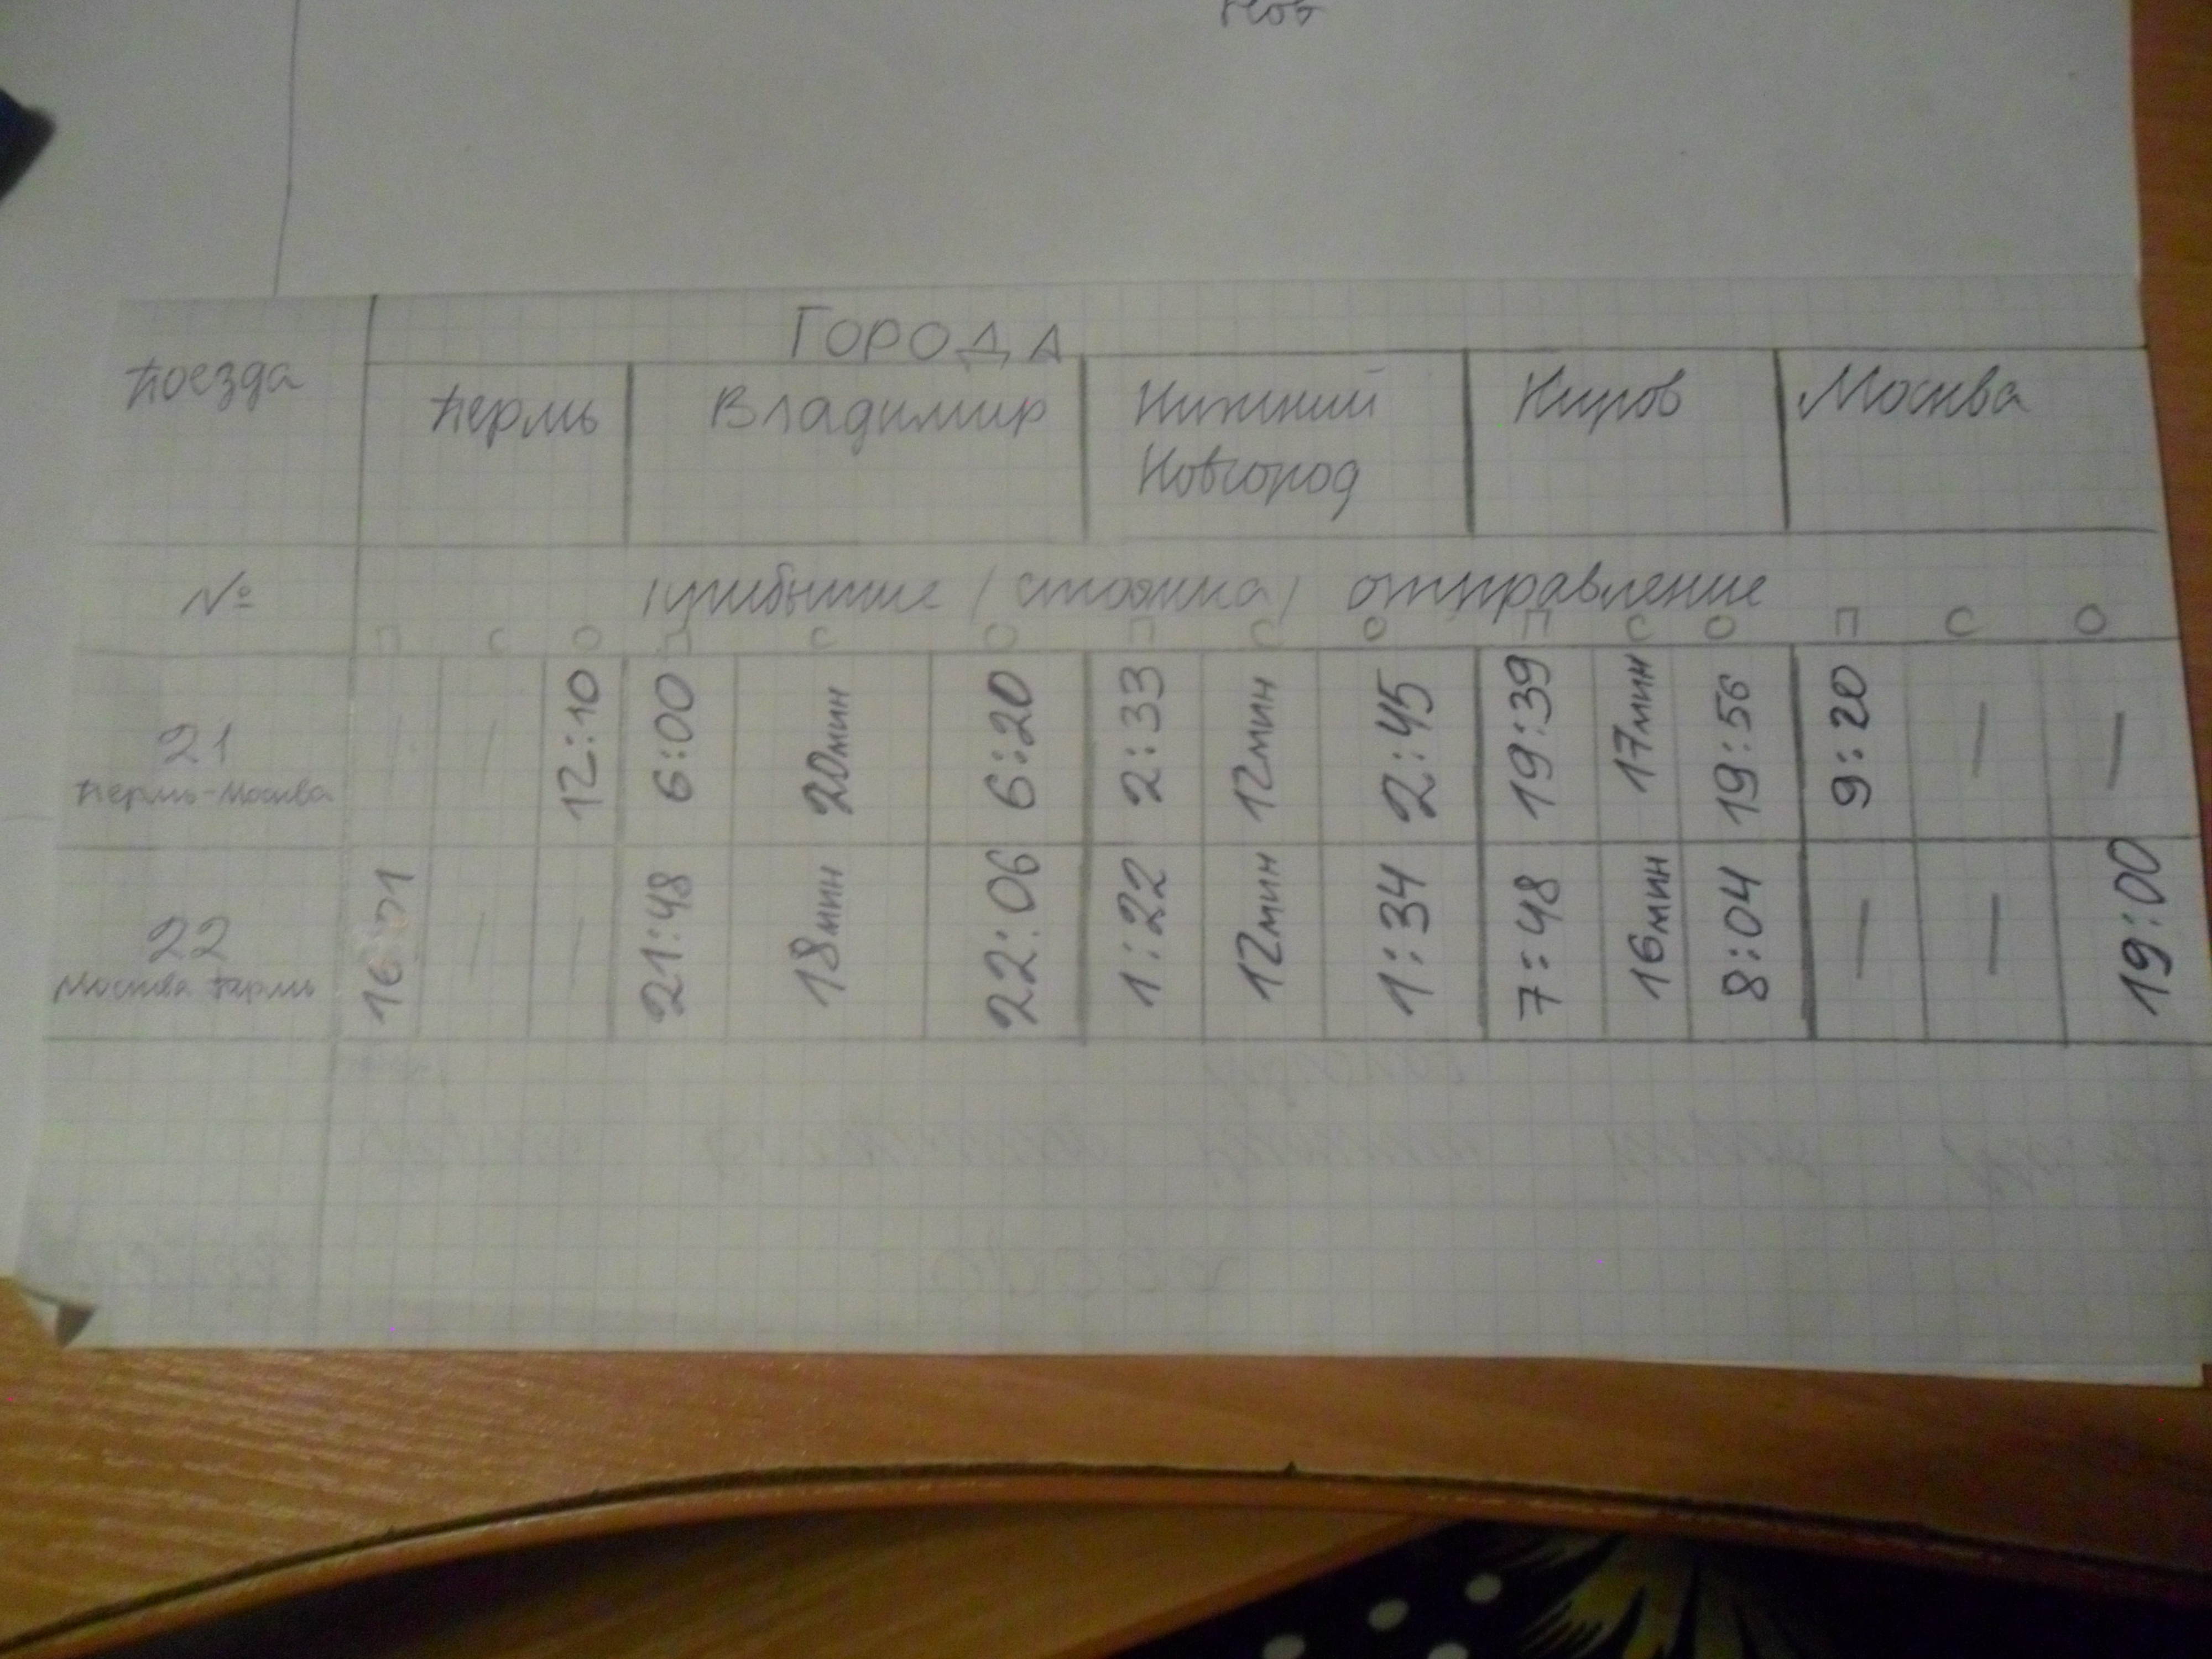 Города
Поезда Пермь Владимир Нижний Новгород Киров Москва
№ Прибытие / стоянка / отправление
П С О П С О П С О П С О П С О
21 Пермь-Москва — — 12:10 6:00 20мин 6:20 2:33 12мин 2:45 19:39 17мин 19:56 9:20 — —
22 Москва Пермь — — 21:48 18мин 22:06 1:22 12мин 1:34 7:48 16мин 8:04 — — 19:00